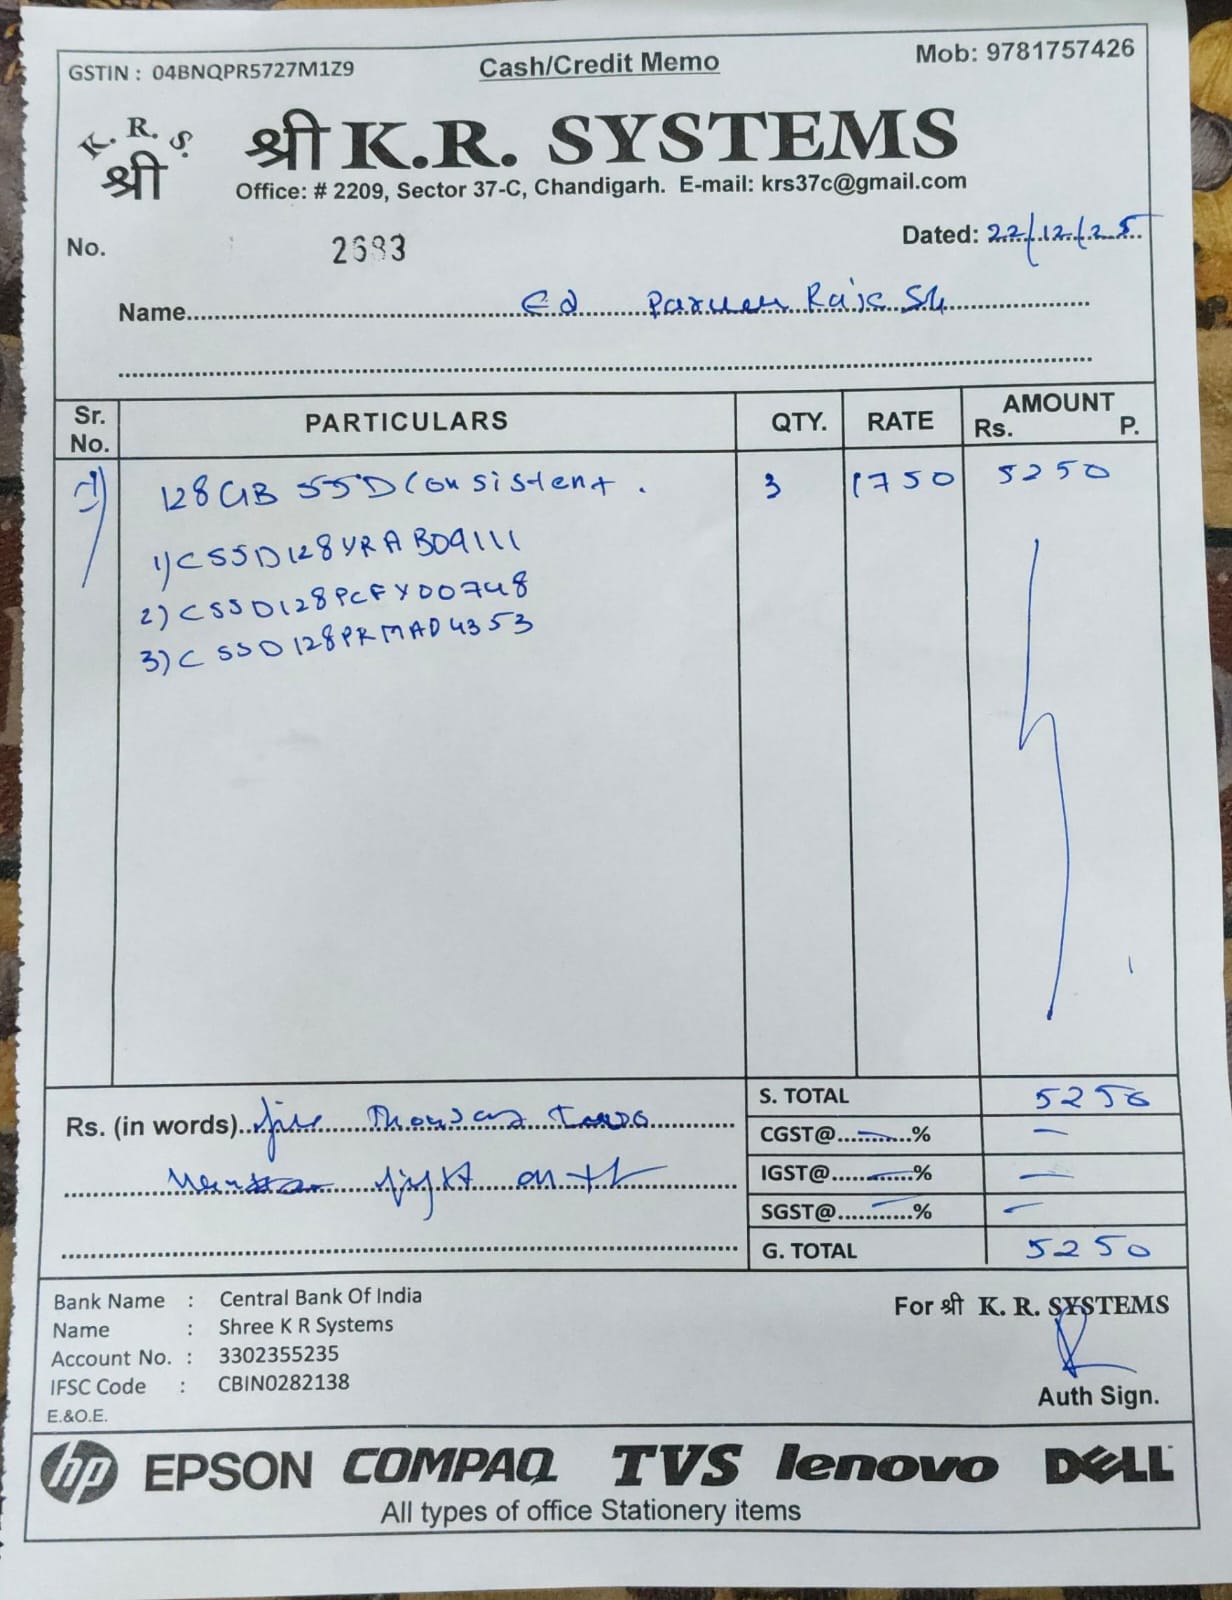 GSTIN : 04BNQPR5727M1Z9 Cash/Credit Memo Mob: 9781757426
K. R. S.
श्री
श्री K.R. SYSTEMS
Office: # 2209, Sector 37-C, Chandigarh. E-mail: krs37c@gmail.com
No. 2683 Dated: 22/12/25
Name
Sr. No. PARTICULARS QTY. RATE AMOUNT Rs. P.
1) 128GB SSD Consistent. 3 1750 5250
1) CSSD128YRAB09111
2) CSSD128PCFY00748
3) CSSD128PRMAD4353
S. TOTAL 5250
Rs. (in words) five Thousand two
CGST@ – % –
IGST@ – % –
SGST@ – % –
G. TOTAL 5250
Bank Name : Central Bank Of India
Name : Shree K R Systems
Account No. : 3302355235
IFSC Code : CBIN0282138
E.&O.E.
For श्री K. R. SYSTEMS
Auth Sign.
hp EPSON COMPAQ TVS lenovo DELL
All types of office Stationery items